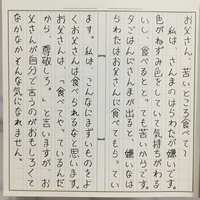 お父さん、苦いところ食べて〜
　私は、さんまのはらわたが嫌いです。
色がねずみ色をしていて気持ちがわる
いし、食べるととっても苦いからです。
夕ごはんにさんまが出ると、嫌いなは
らわたはお父さんに食べてもらってい
ます。私は、こんなにまずいものをよ
くお父さんは食べられるなと思います。
お父さんは、「食べてやっているんだ
から、尊敬しろ。」と言いますが、お
父さんが自分で言うのがおもしろくて
なかなかそんな気になれません。